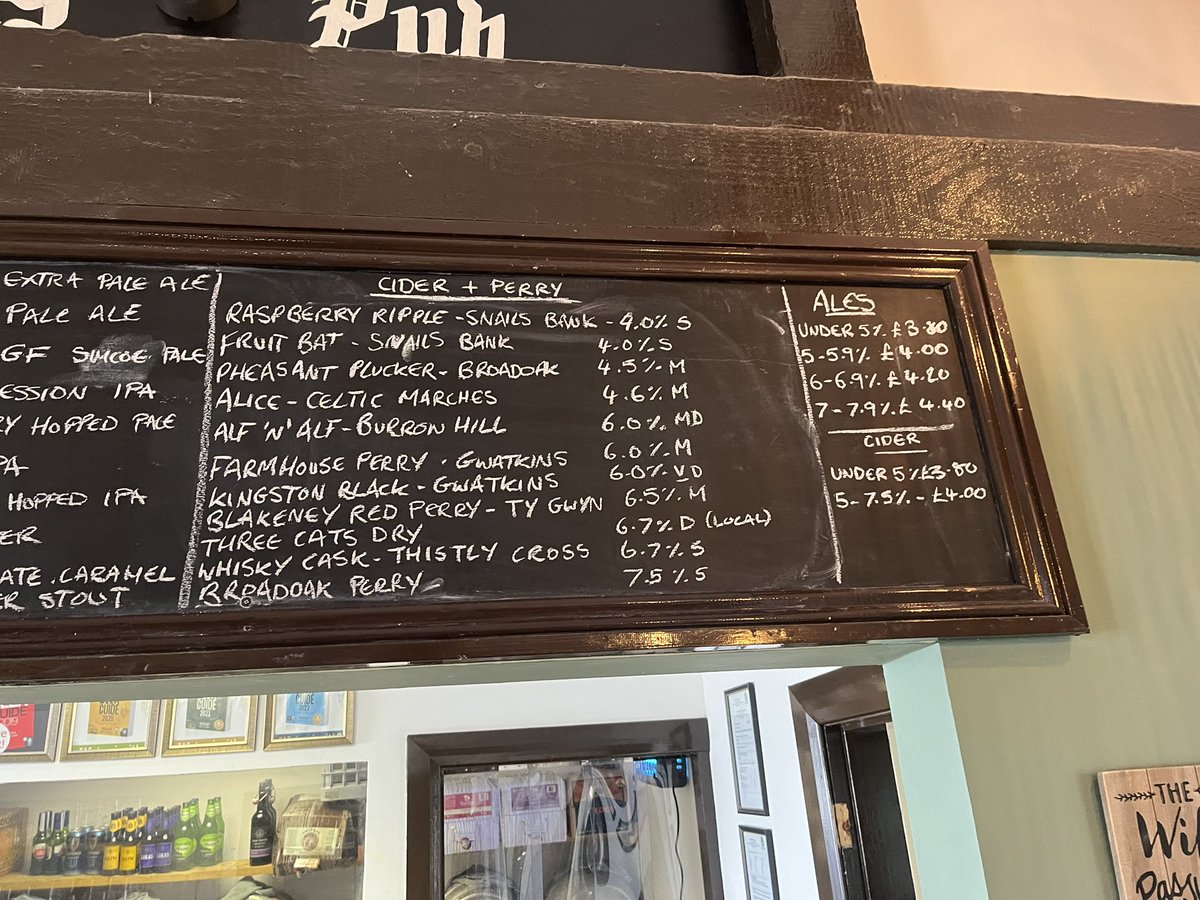 Pub
EXTRA PALE ALE
PALE ALE
GF SIMCOE PALE
ESSION IPA
RY HOPPED PALE
PA
HOPPED IPA
ER
ATE.CARAMEL
ER STOUT
CIDER + PERRY
RASPBERRY RIPPLE - SNAILS BANK - 4.0% S
FRUIT BAT - SNAILS BANK 4.0% S
PHEASANT PLUCKER - BROADOAK 4.5% M
ALICE - CELTIC MARCHES 4.6% M
ALF 'N' ALF - BURRON HILL 6.0% MD
FARMHOUSE PERRY - GWATKINS 6.0% M
KINGSTON BLACK - GWATKINS 6.0% VD
BLAKENEY RED PERRY - TY GWYN 6.5% M
THREE CATS DRY 6.7% D (LOCAL)
WHISKY CASK - THISTLY CROSS 6.7% S
BROADOAK PERRY 7.5% S
ALES
UNDER 5% £3.80
5-5.9% £4.00
6-6.9% £4.20
7-7.9% £4.40
CIDER
UNDER 5% £3.80
5-7.5% - £4.00
GUIDE
2019
GUIDE
2020
GUIDE
GUIDE
THE